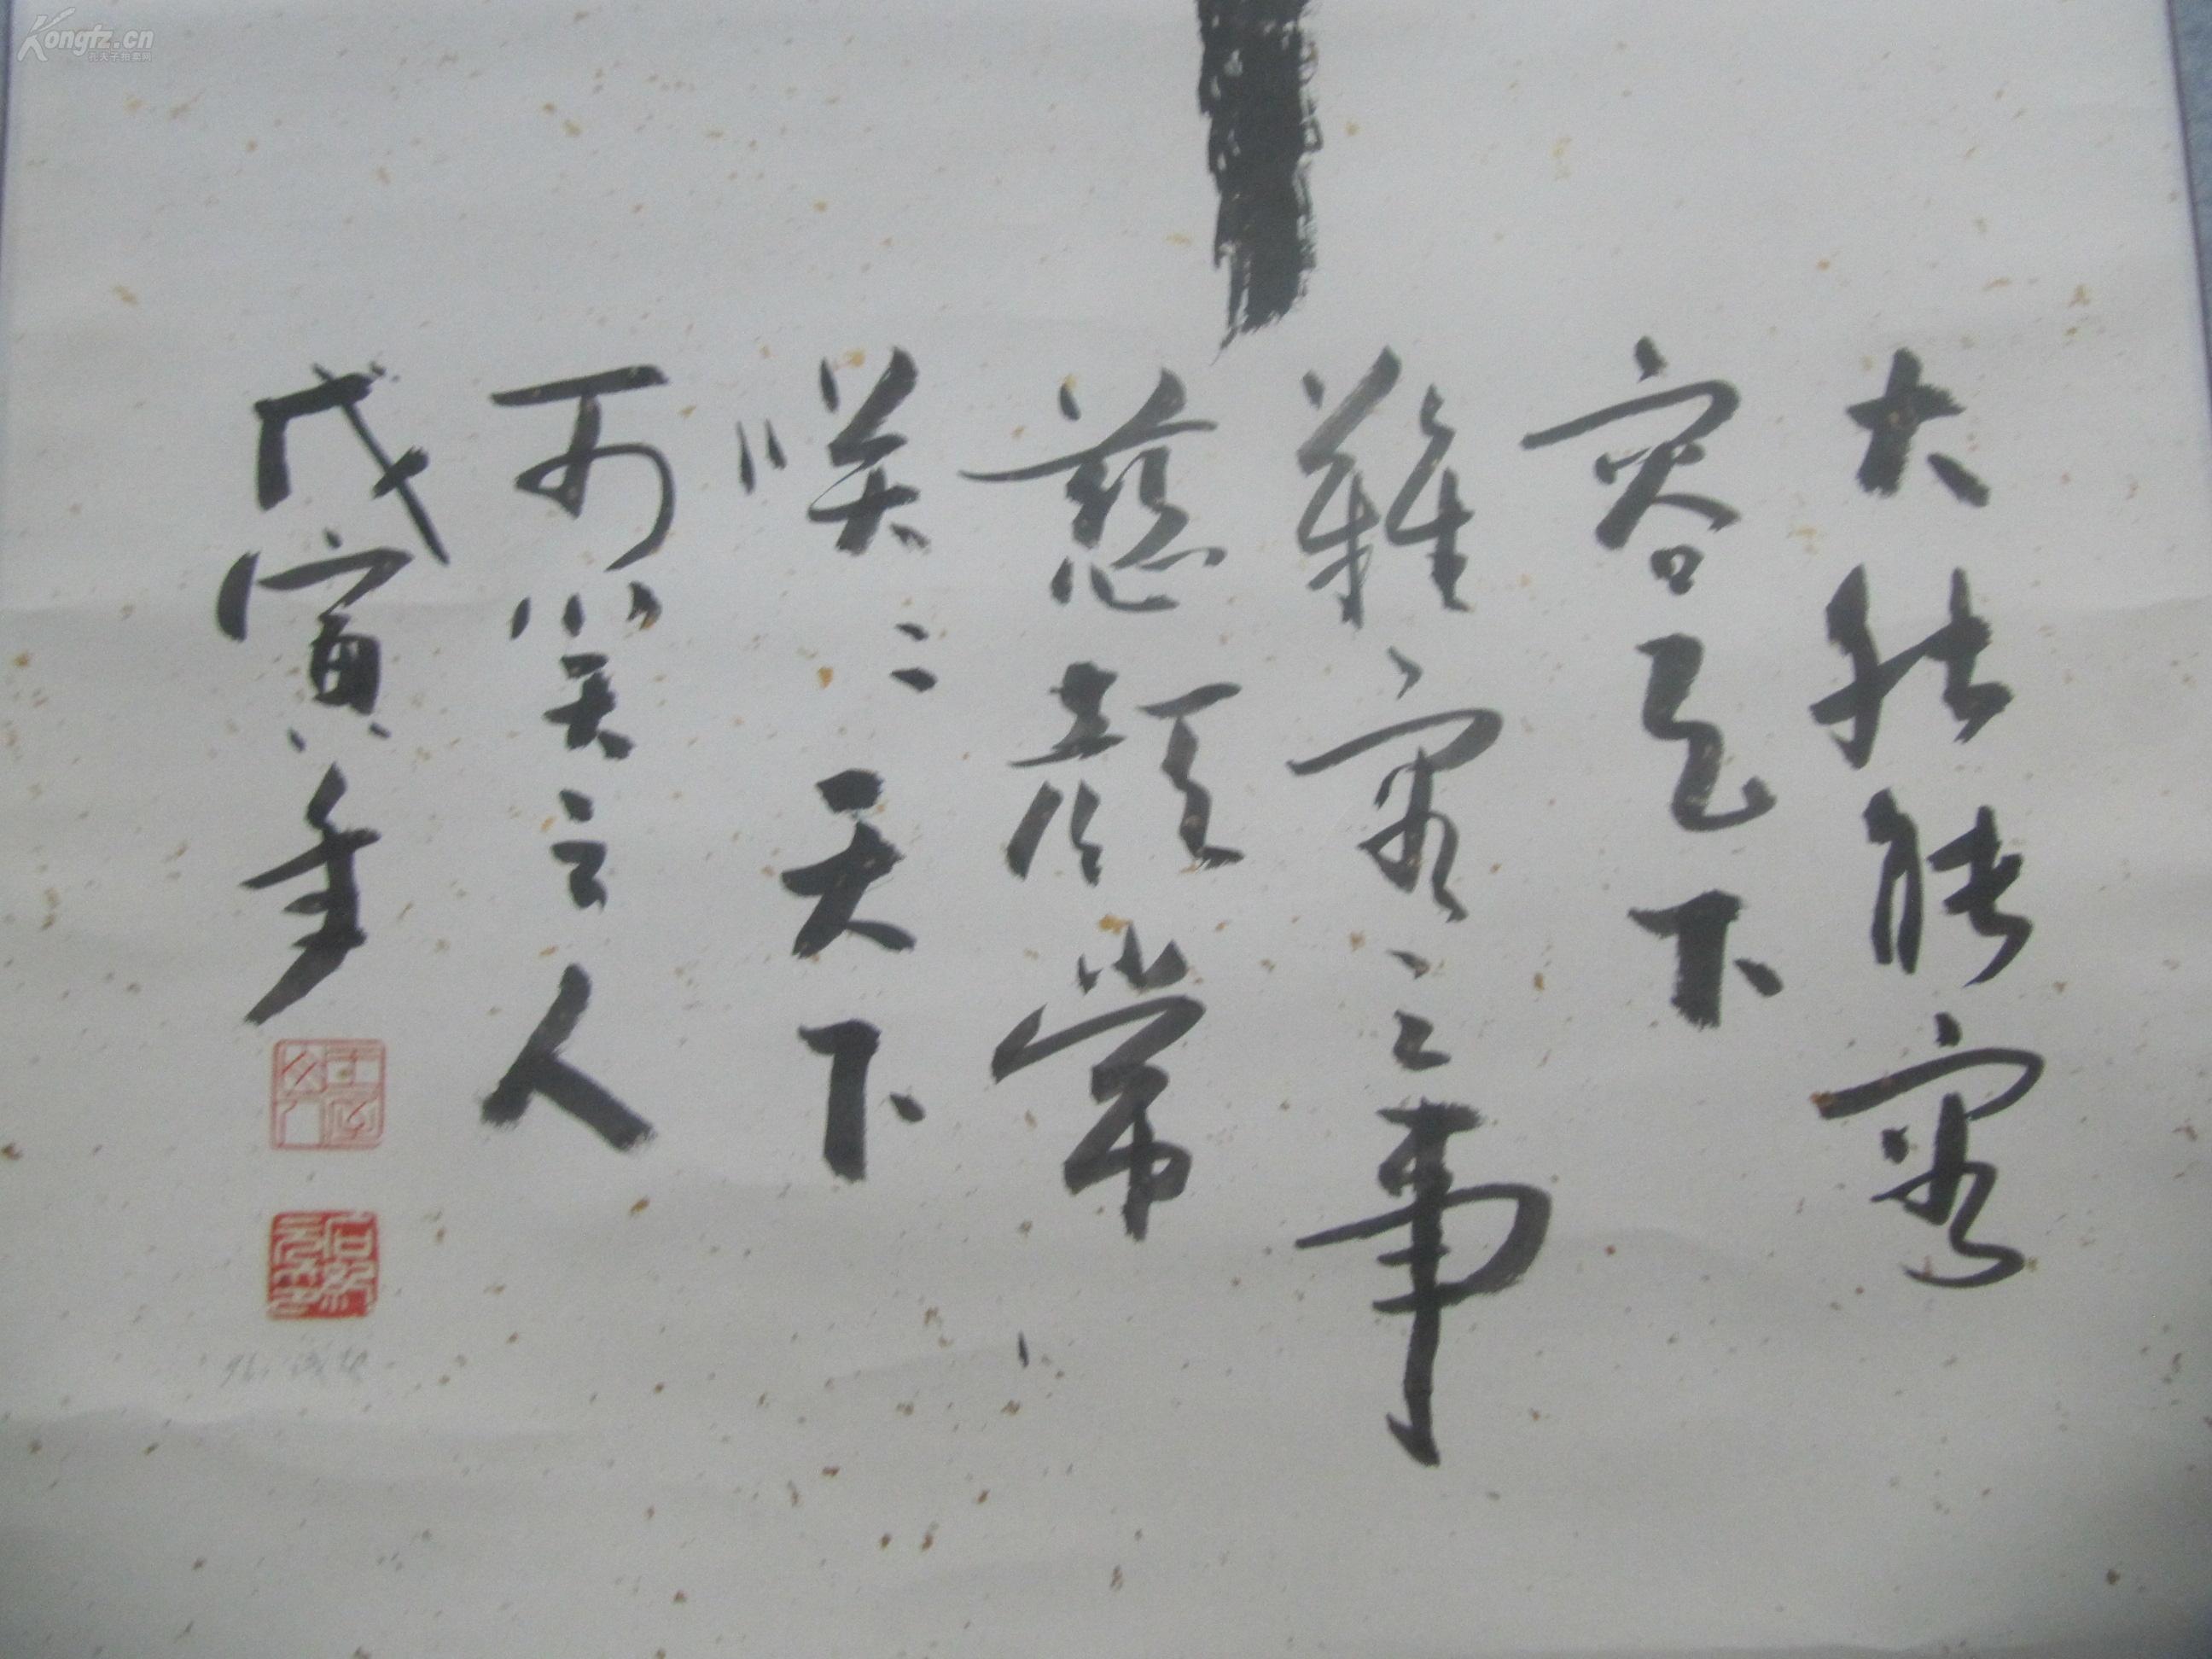 大肚能容
容天下
難容之事
慈顏常
咲〻天下
可笑之人
戊寅年
Kongfz.cn